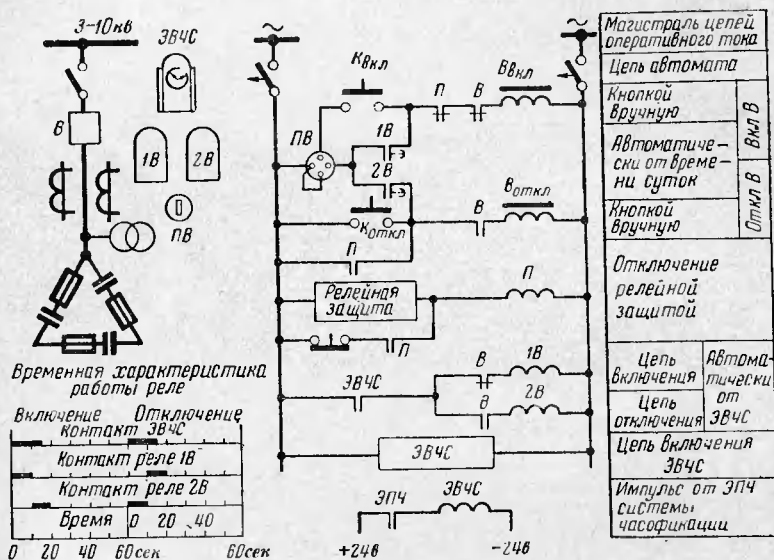 3-10кв
ЭВЧС
В
1В
2В
ПВ
Временная характеристика
работы реле
Включение
Отключение
контакт ЭВЧС
Контакт реле 1В
Контакт реле 2В
Время
0 20 40
0 20 40 60сек
60сек
~
~
Kвкл
П
В
Ввкл
ПВ
1В
2В
Kоткл
В
Воткл
П
Релейная
защита
П
П
ЭВЧС
В
1В
В
2В
ЭВЧС
ЭПЧ
ЭВЧС
+24в
-24в
Магистраль цепей
оперативного тока
Цепь автомата
Кнопкой
вручную
Вкл В
Автоматиче-
ски от време-
ни суток
Откл В
Кнопкой
вручную
Отключение
релейной
защитой
Цепь
включения
Цепь
отключения
Автома-
тически
от
ЭВЧС
Цепь включения
ЭВЧС
Импульс от ЭПЧ
системы
часофикации